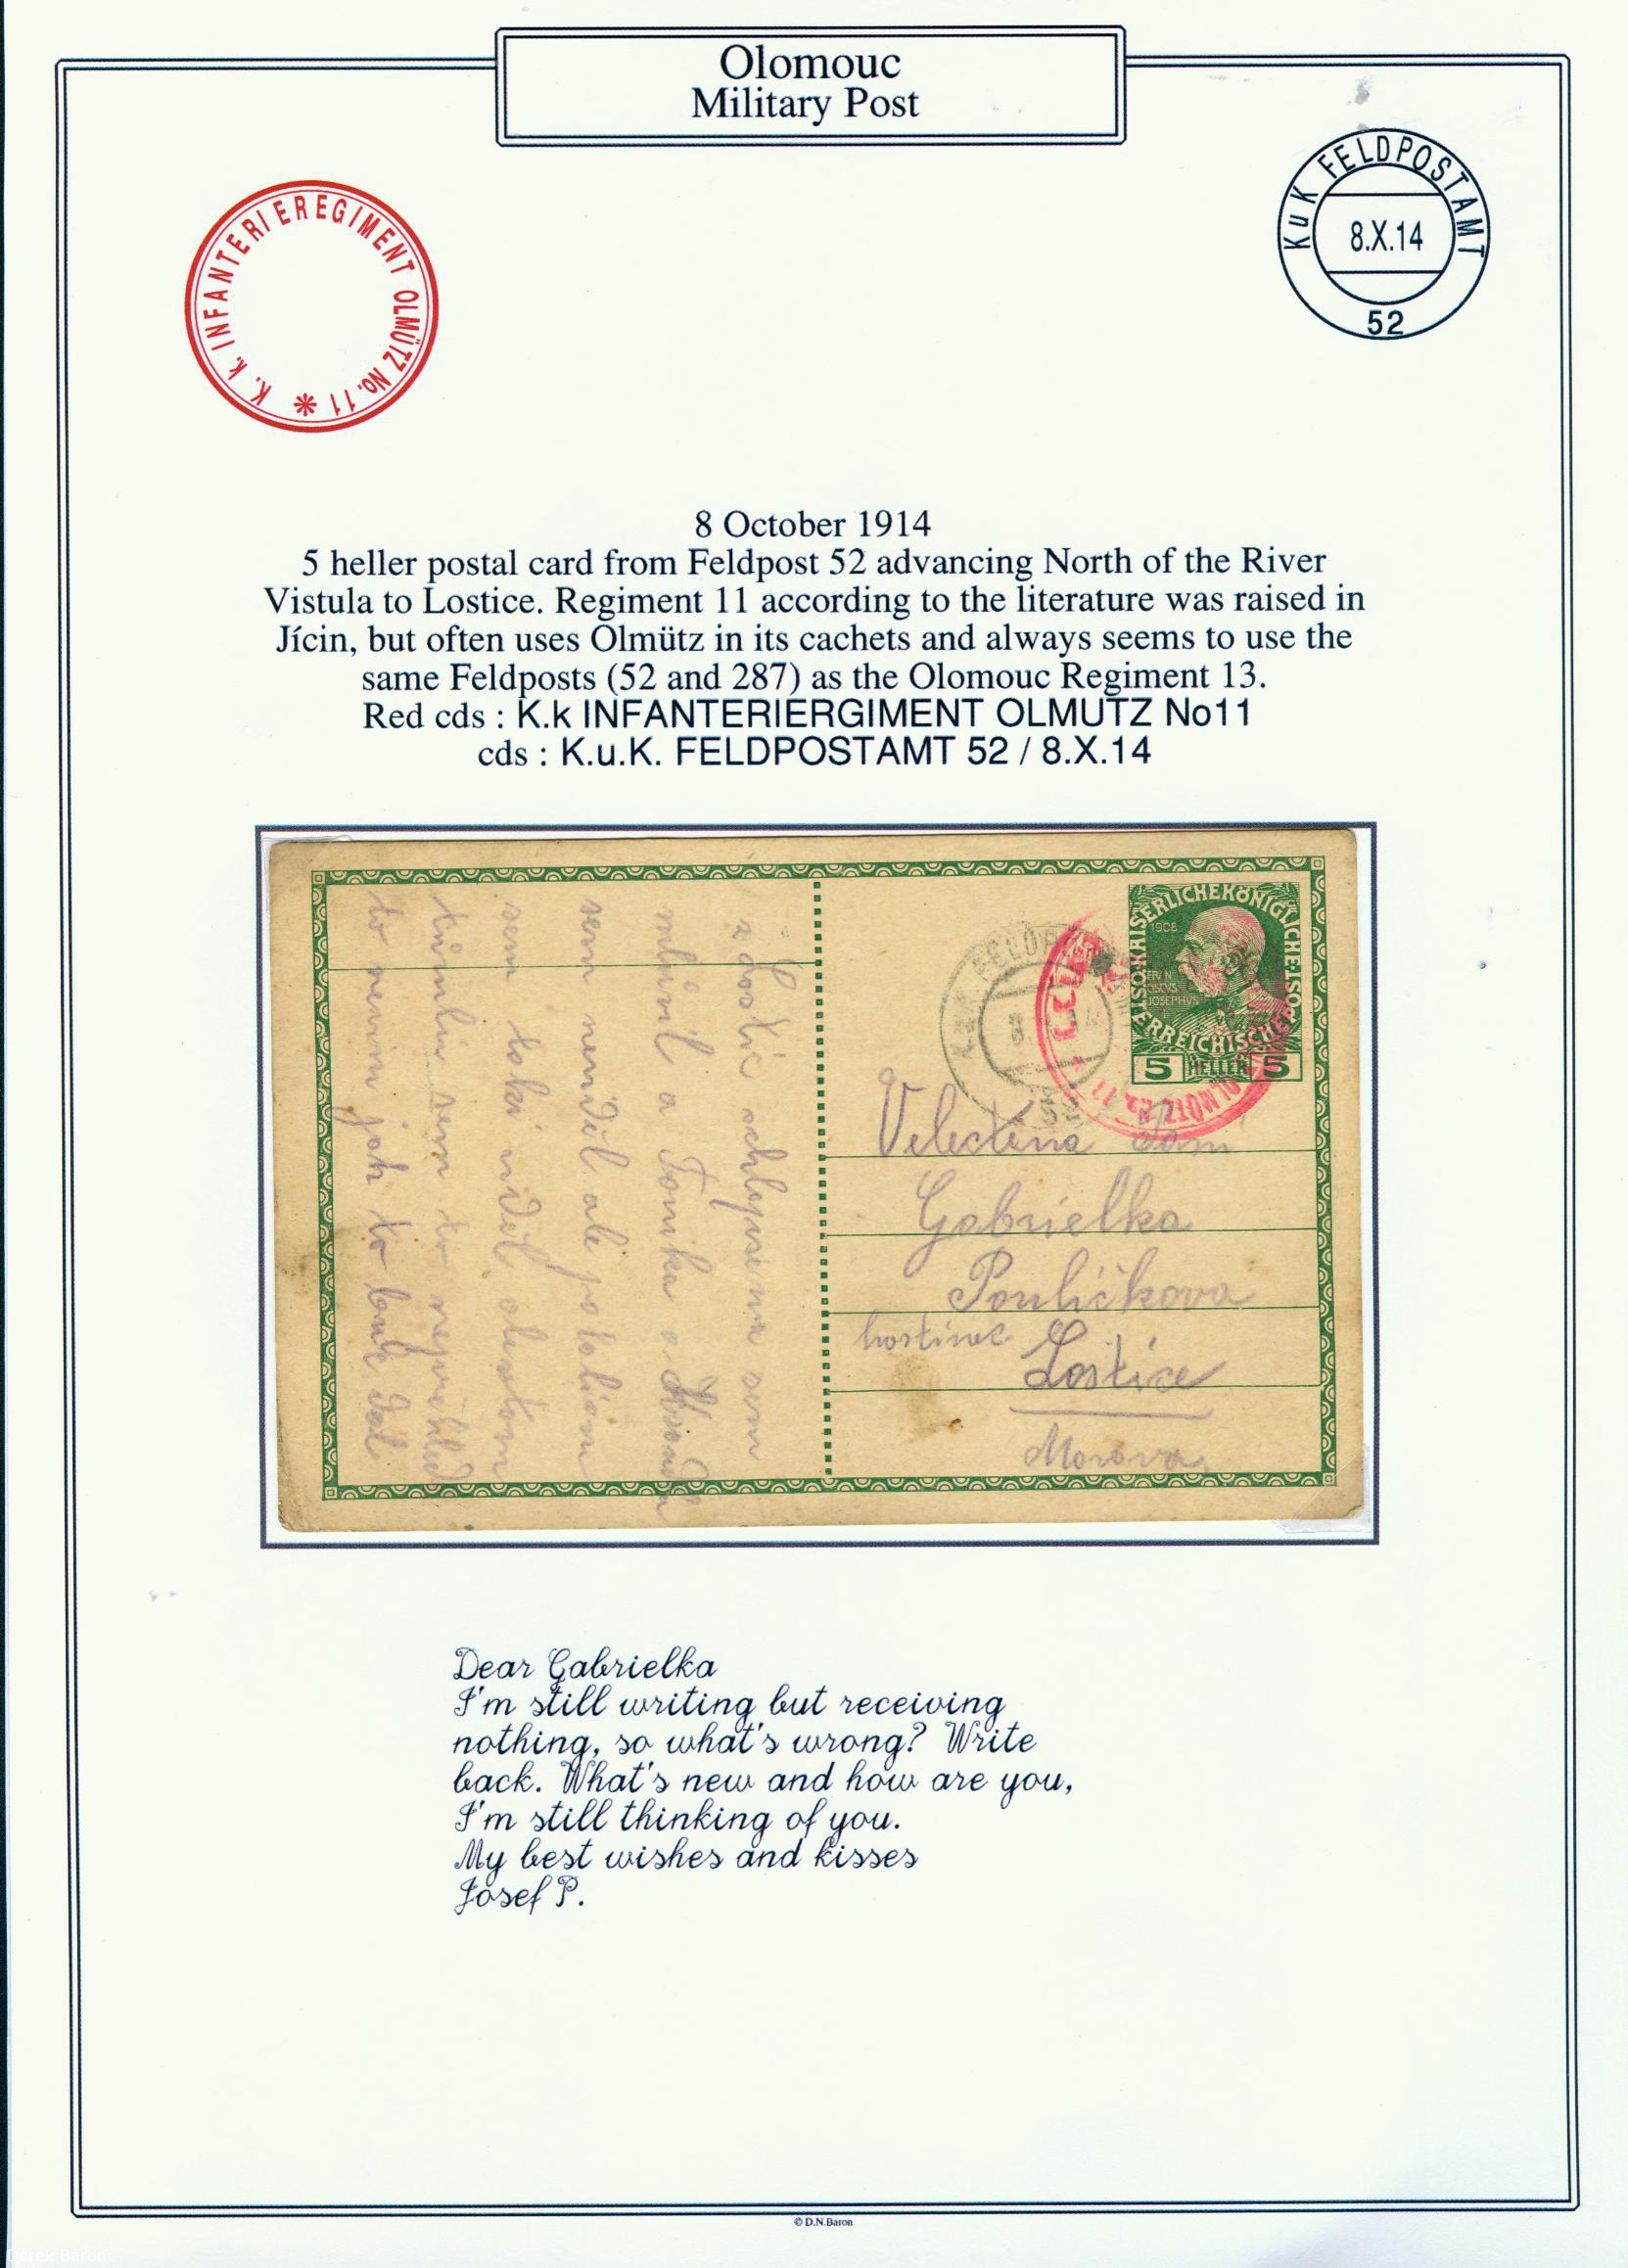 Olomouc
Military Post
K. k. INFANTERIEREGIMENT OLMÜTZ No. 11
KuK FELDPOSTAMT
8.X.14
52
8 October 1914
5 heller postal card from Feldpost 52 advancing North of the River
Vistula to Lostice. Regiment 11 according to the literature was raised in
Jícin, but often uses Olmütz in its cachets and always seems to use the
same Feldposts (52 and 287) as the Olomouc Regiment 13.
Red cds : K.k INFANTERIERGIMENT OLMUTZ No11
cds : K.u.K. FELDPOSTAMT 52 / 8.X.14
KAISERLICHEKÖNIGLICHE
ÖSTERREICHISCHE POST
1908
FRAN
CISCVS
JOSEPHVS
5 HELLER 5
OLMÜTZ
Velectena
Gabrielka
Pouličkova
hostinec Lostice
Morava
z Lostic
mluvil a Tonika a
sem neviděl ale
sem taki viděl
sem to
to nevim jak to
Dear Gabrielka
I'm still writing but receiving
nothing, so what's wrong? Write
back. What's new and how are you,
I'm still thinking of you.
My best wishes and kisses
Josef P.
© D.N.Baron
Derek Baron